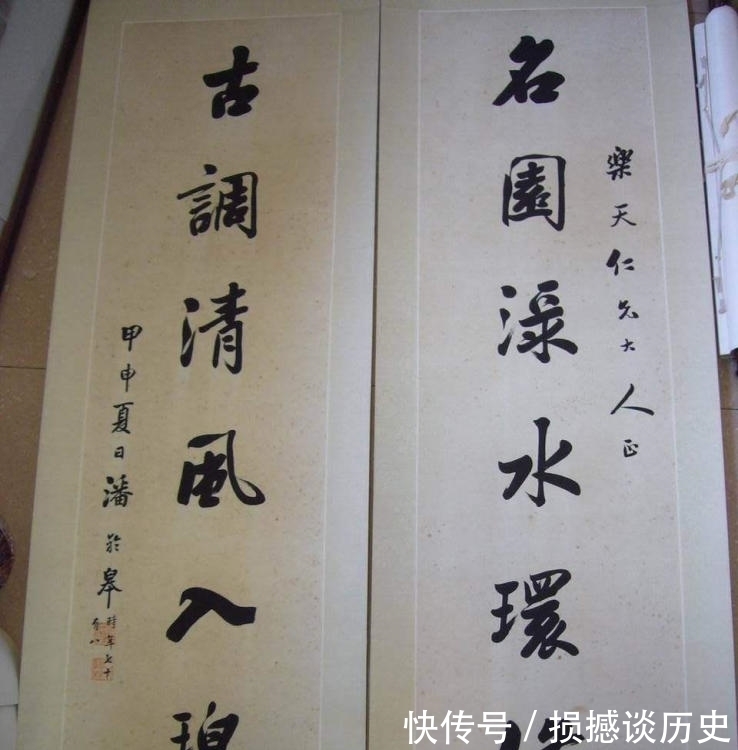 樂天仁兄大人正
名園渌水環
古調清風入碧
甲申夏日潘齡皋時年七十有八
快传号/损撼谈历史